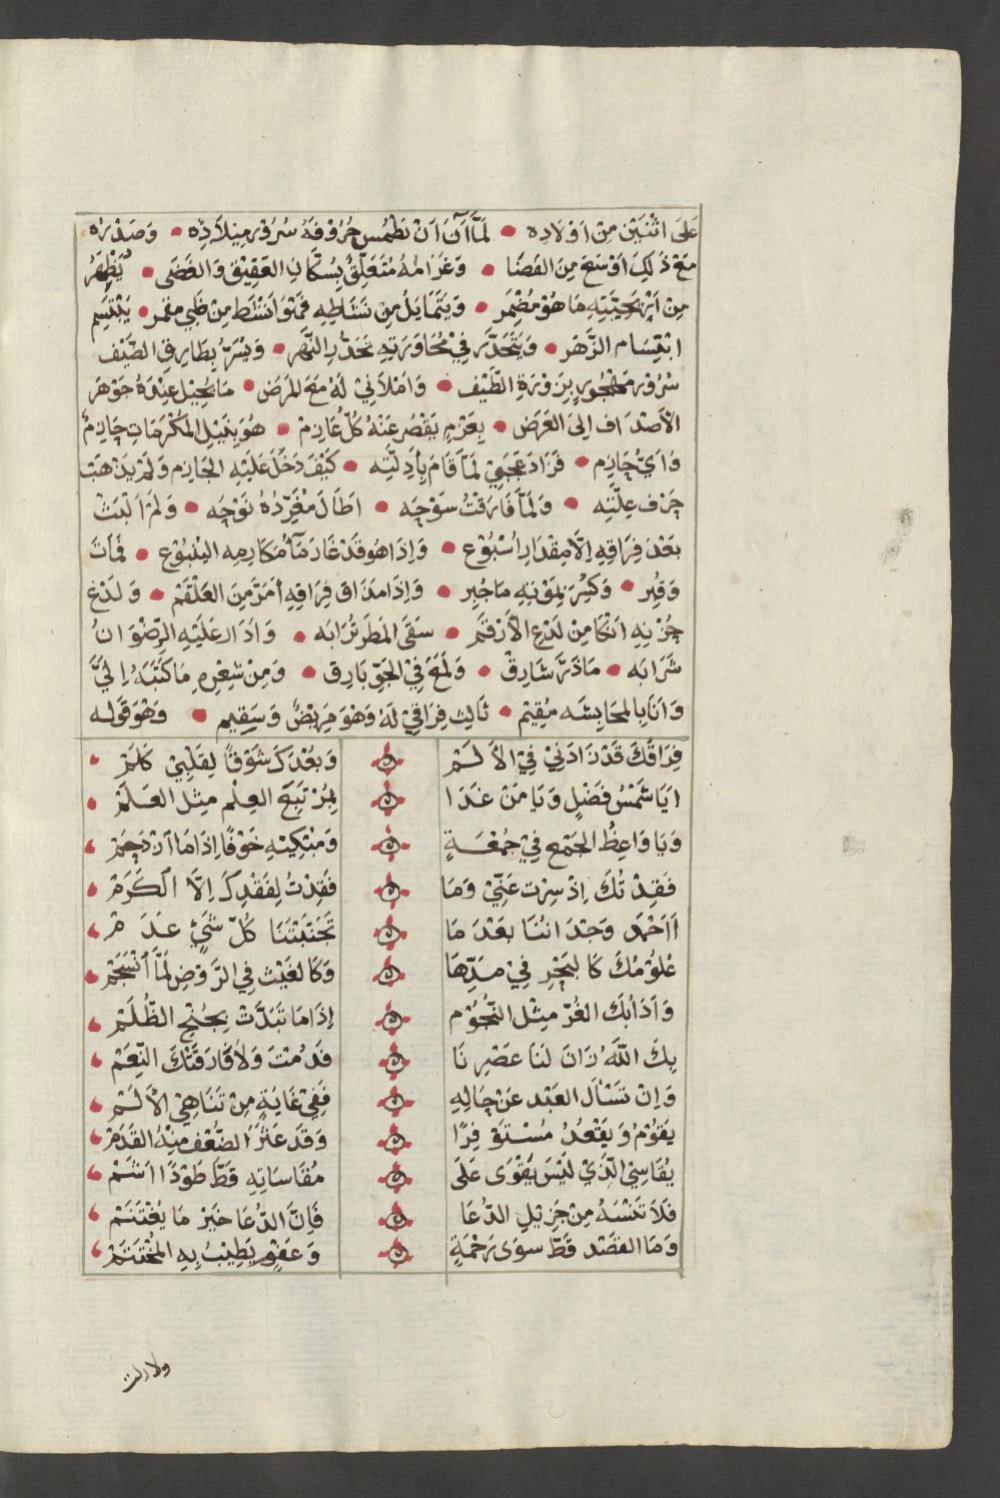 عَلَى اثْنَيْنِ مِنْ اَوْلَادِه • لَمَّا آنَ اَنْ تَطْمُسَ حُرُوْفَهُ سُرُوْرَ مِيْلَادِه • وَصَدْرُه
مَعْ ذَلِكَ اَوْسَعُ مِنَ الفَضَا • وَغَرَامُهُ مُتَعَلِّقٌ بِسُكَّانِ العَقِيْقِ وَالغَضَى • يُظْهِرُ
مِنْ مَا هُوَ مُضْمَر • وَيَتَمَايَلُ مِنْ نَشَاطِهِ فَهُوَ اَنْشَطُ مِنْ ظَبْيٍ مقمر • يَبْتَسِم
ابْتِسَام الزَّهَر • وَيَتَحَدَّر فِيْ مُحَاوَرَتِهِ تَحَدُّرِ النَّهَر • وَيُسَرُّ بِطَارِقِ الضَّيْف
سُرُوْرَ مَهْجُوْرٍ بِزَوْرَةِ الطَّيْف • وَامْلَانِيْ لَهُ مَعَ المَرَض • مَا يُحِيْل عِنْدَهُ جَوْهَر
الْاَصْدَاف اِلَى العَرَض • بِعَزْمٍ يَقْصُر عَنْهُ كُلُّ عَازِمْ • هُوَ بِنَيْلِ المَكْرُمَاتِ جَازِمٌ
وَاَيُّ جَازِم • فَزَادَ عَجَبِيْ لَمَّا قَامَ بِاَدِلَّتِه • كَيْفَ دَخَلَ عَلَيْهِ الجَازِم وَلَمْ يَذْهَبْ
حَرْف عِلَّتِه • وَلَمَّا فَارَقْتُ سَوْحَه • اَطَالَ مُغَرِّدُهُ نَوْحَه • وَلَمْ اَلْبَثْ
بَعْدَ فِرَاقِهِ اِلَّا مِقْدَارَ اُسْبُوْع • وَاِذَا هُوَ قَدْ غَارَ مَآءُ مَكَارِمِهِ اليَنْبُوْع • فَمَاتَ
وَقُبِر • وَكُسِرَ بِمَوْتِهِ مَا جُبِر • وَاِذَا مَذَاق فِرَاقِهِ اَمَرَّ مِنَ العَلْقَمْ • وَلَدْغ
حُزْنِهِ اَنْكَا مِنْ لَدْغِ الْاَرْقَم • سَقَى المَطَر تُرَابَه • وَاَدَارَ عَلَيْهِ الرِّضْوَانُ
شَرَابَه • مَا ذَرَّ شَارِقْ • وَلَمَعَ فِيْ الجَوِّ بَارِق • وَمِنْ شِعْرِهِ مَا كَتَبَهُ اِلَيَّ
وَاَنَا بِالمحَابِشَه مُقِيْم • ثَالِث فِرَاقِيْ لَهُ وَهُوَ مَرِيْضٌ وَسَقِيم • وَهُوَ قَوله
فِرَاقُكَ قَدْ زَادَنِيْ فِيْ الاَلَمْ وَبُعْدُكَ شَوْقًا لِقَلْبِيْ كَلَمْ
اَيَا شَمْسُ فَضْلٍ وَيَا مَنْ غَدَا لِمَنْ تَبِعَ العِلْم مِثْل العَلَمْ
وَيَا وَاعِظُ الجَمْعِ فِيْ جُمْعَةٍ وَمُبْكِيْهِ خَوْفًا اِذَا مَا
فَقَدْ تُكَ اِذْ سِرْتَ عَنِّيْ وَمَا فَقِدْتُ لِفَقْدِكَ اِلَّا الكَرَمْ
اَاَحْمَد وَجْدَانُنَا بعْدَ مَا تَجَنَّبْتَنَا كُلّ شَيْءٍ عَدَمْ
عُلُوْمُكَ كَالبَحْرِ فِيْ مَدِّهَا وَكَالغَيْث فِي الرَّوْضِ لَمَّا انْسَجَمْ
وَآدَابُكَ الغُرّ مِثْل النُّجُوْم اِذَا مَا تَبَدَّتْ بِجُنْحِ الظُّلَمْ
بِكَ اللّٰهُ زَانَ لَنَا عَصْرنَا فَدُمْتَ وَلَا فَارَقَتْكَ النِّعَمْ
وَاِنْ تَسْئَال العَبْد عَنْ حَالِهِ فَفِيْ غَايَةٍ مِنْ تَنَاهِيْ الْاَلَمْ
يَقُوْمُ وَيَقْعُدُ مُسْتَوْفِزًا وَقَدْ عَثَّرَ الضُّعْف مِنْهُ القَدَمْ
يُقَاسِيْ الَّذِيْ لَيْسَ يَقْوَى عَلَى مُقَاسَاتِهِ قَطُّ طَوْدًا اَشَمْ
فَلَا تَنْسَهُ مِنْ جَزِيْلِ الدُّعَا فَاِنَّ الدُّعَا خَيْرُ مَا يُغْتَنَمْ
وَمَا القَصْد قَطُّ سوَى رَحْمَةٍ وَعَفْوٍ يَطِيْبُ بِهِ المُخْتَتَمْ
ولا زلت